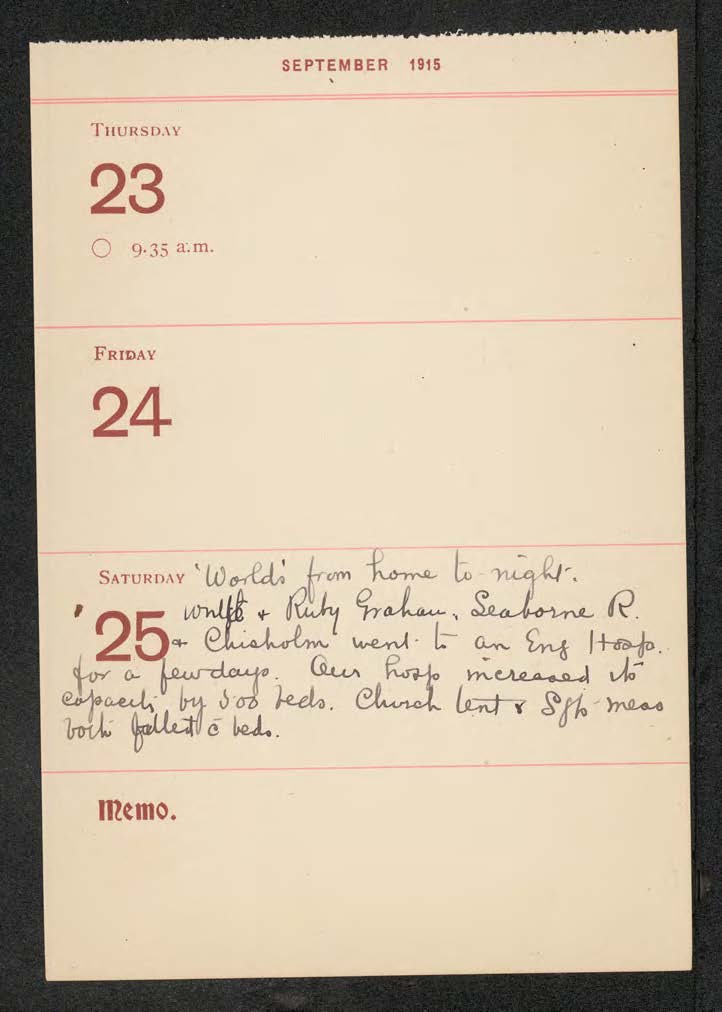 SEPTEMBER 1915
THURSDAY
23
9.35 a.m.
FRIDAY
24
SATURDAY 'Worlds' from home to-night.
25 & Ruby Graham, Seaborne R.
& Chisholm went to an Eng Hosp.
for a few days. Our hosp increased its
capacity by 500 beds. Church tent & Sgts mess
both filled c̄ beds.
Memo.